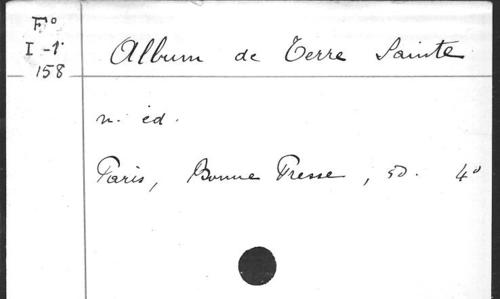 F°
I-1
158
Album de Terre Sainte
n. éd.
Paris, Bonne Presse, sd. 4°